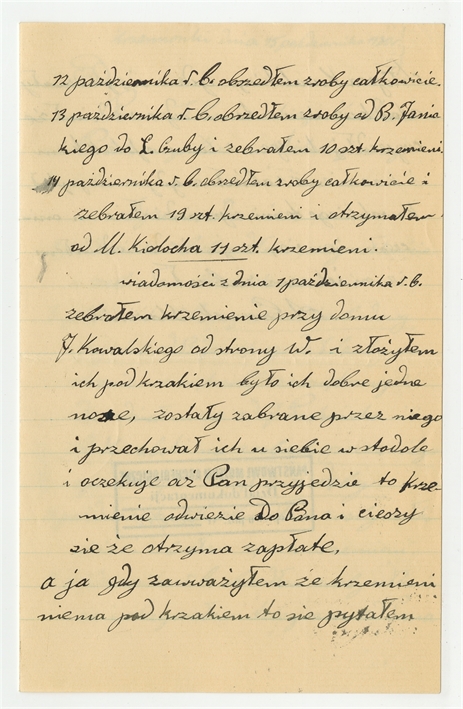 12 października r. b. obszedłem zroby całkowicie.
13 października r. b. obszedłem zroby od B. Jania
kiego do L. Czuby i zebrałem 10 szt. krzemieni.
14 października r. b. obszedłem zroby całkowicie i
zebrałem 19 szt. krzemieni i otrzymałem
od M. Kidocha 11 szt. krzemieni.
wiadomości z dnia 1 października r. b.
zebrałem krzemienie przy domu
J. Kowalskiego od strony W. i złożyłem
ich pod krzakiem było ich dobre jedne
nosze, zostały zabrane przez niego
i przechował ich u siebie w stodole
i oczekuje aż Pan przyjedzie to krze-
mienie odwiezie Do Pana i cieszy
sie że otrzyma zapłate,
a ja gdy zawważyłem że krzemieni
niema pod krzakiem to sie pytałem